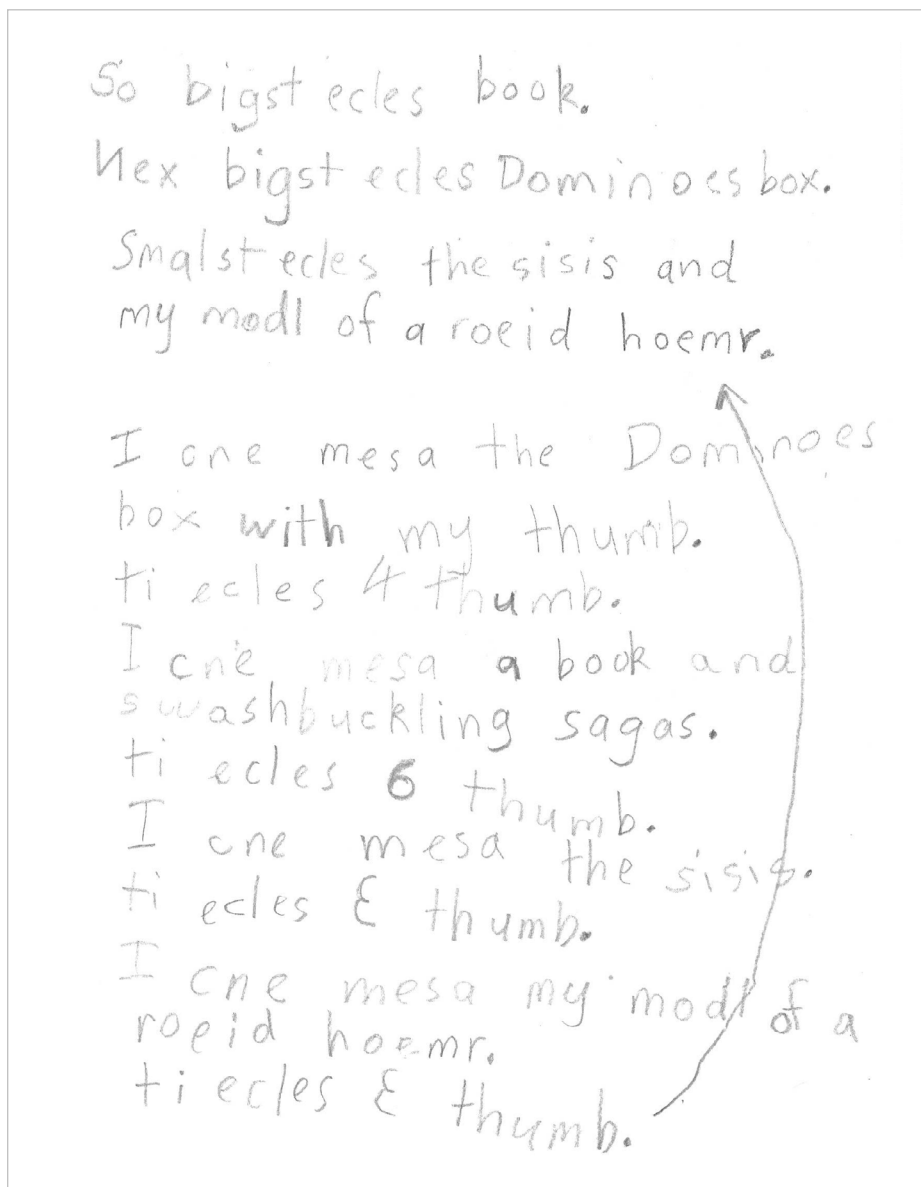 So bigst ecles book.
Nex bigst ecles Dominoes box.
Smalst ecles the sisis and
my modl of a roeid hoemr.
I cne mesa the Dominoes
box with my thumb.
ti ecles 4 thumb.
I cne mesa a book and
swashbuckling sagas.
ti ecles 6 thumb.
I cne mesa the sisis.
ti ecles 3 thumb.
I cne mesa my modl of a
roeid hoemr.
ti ecles 3 thumb.